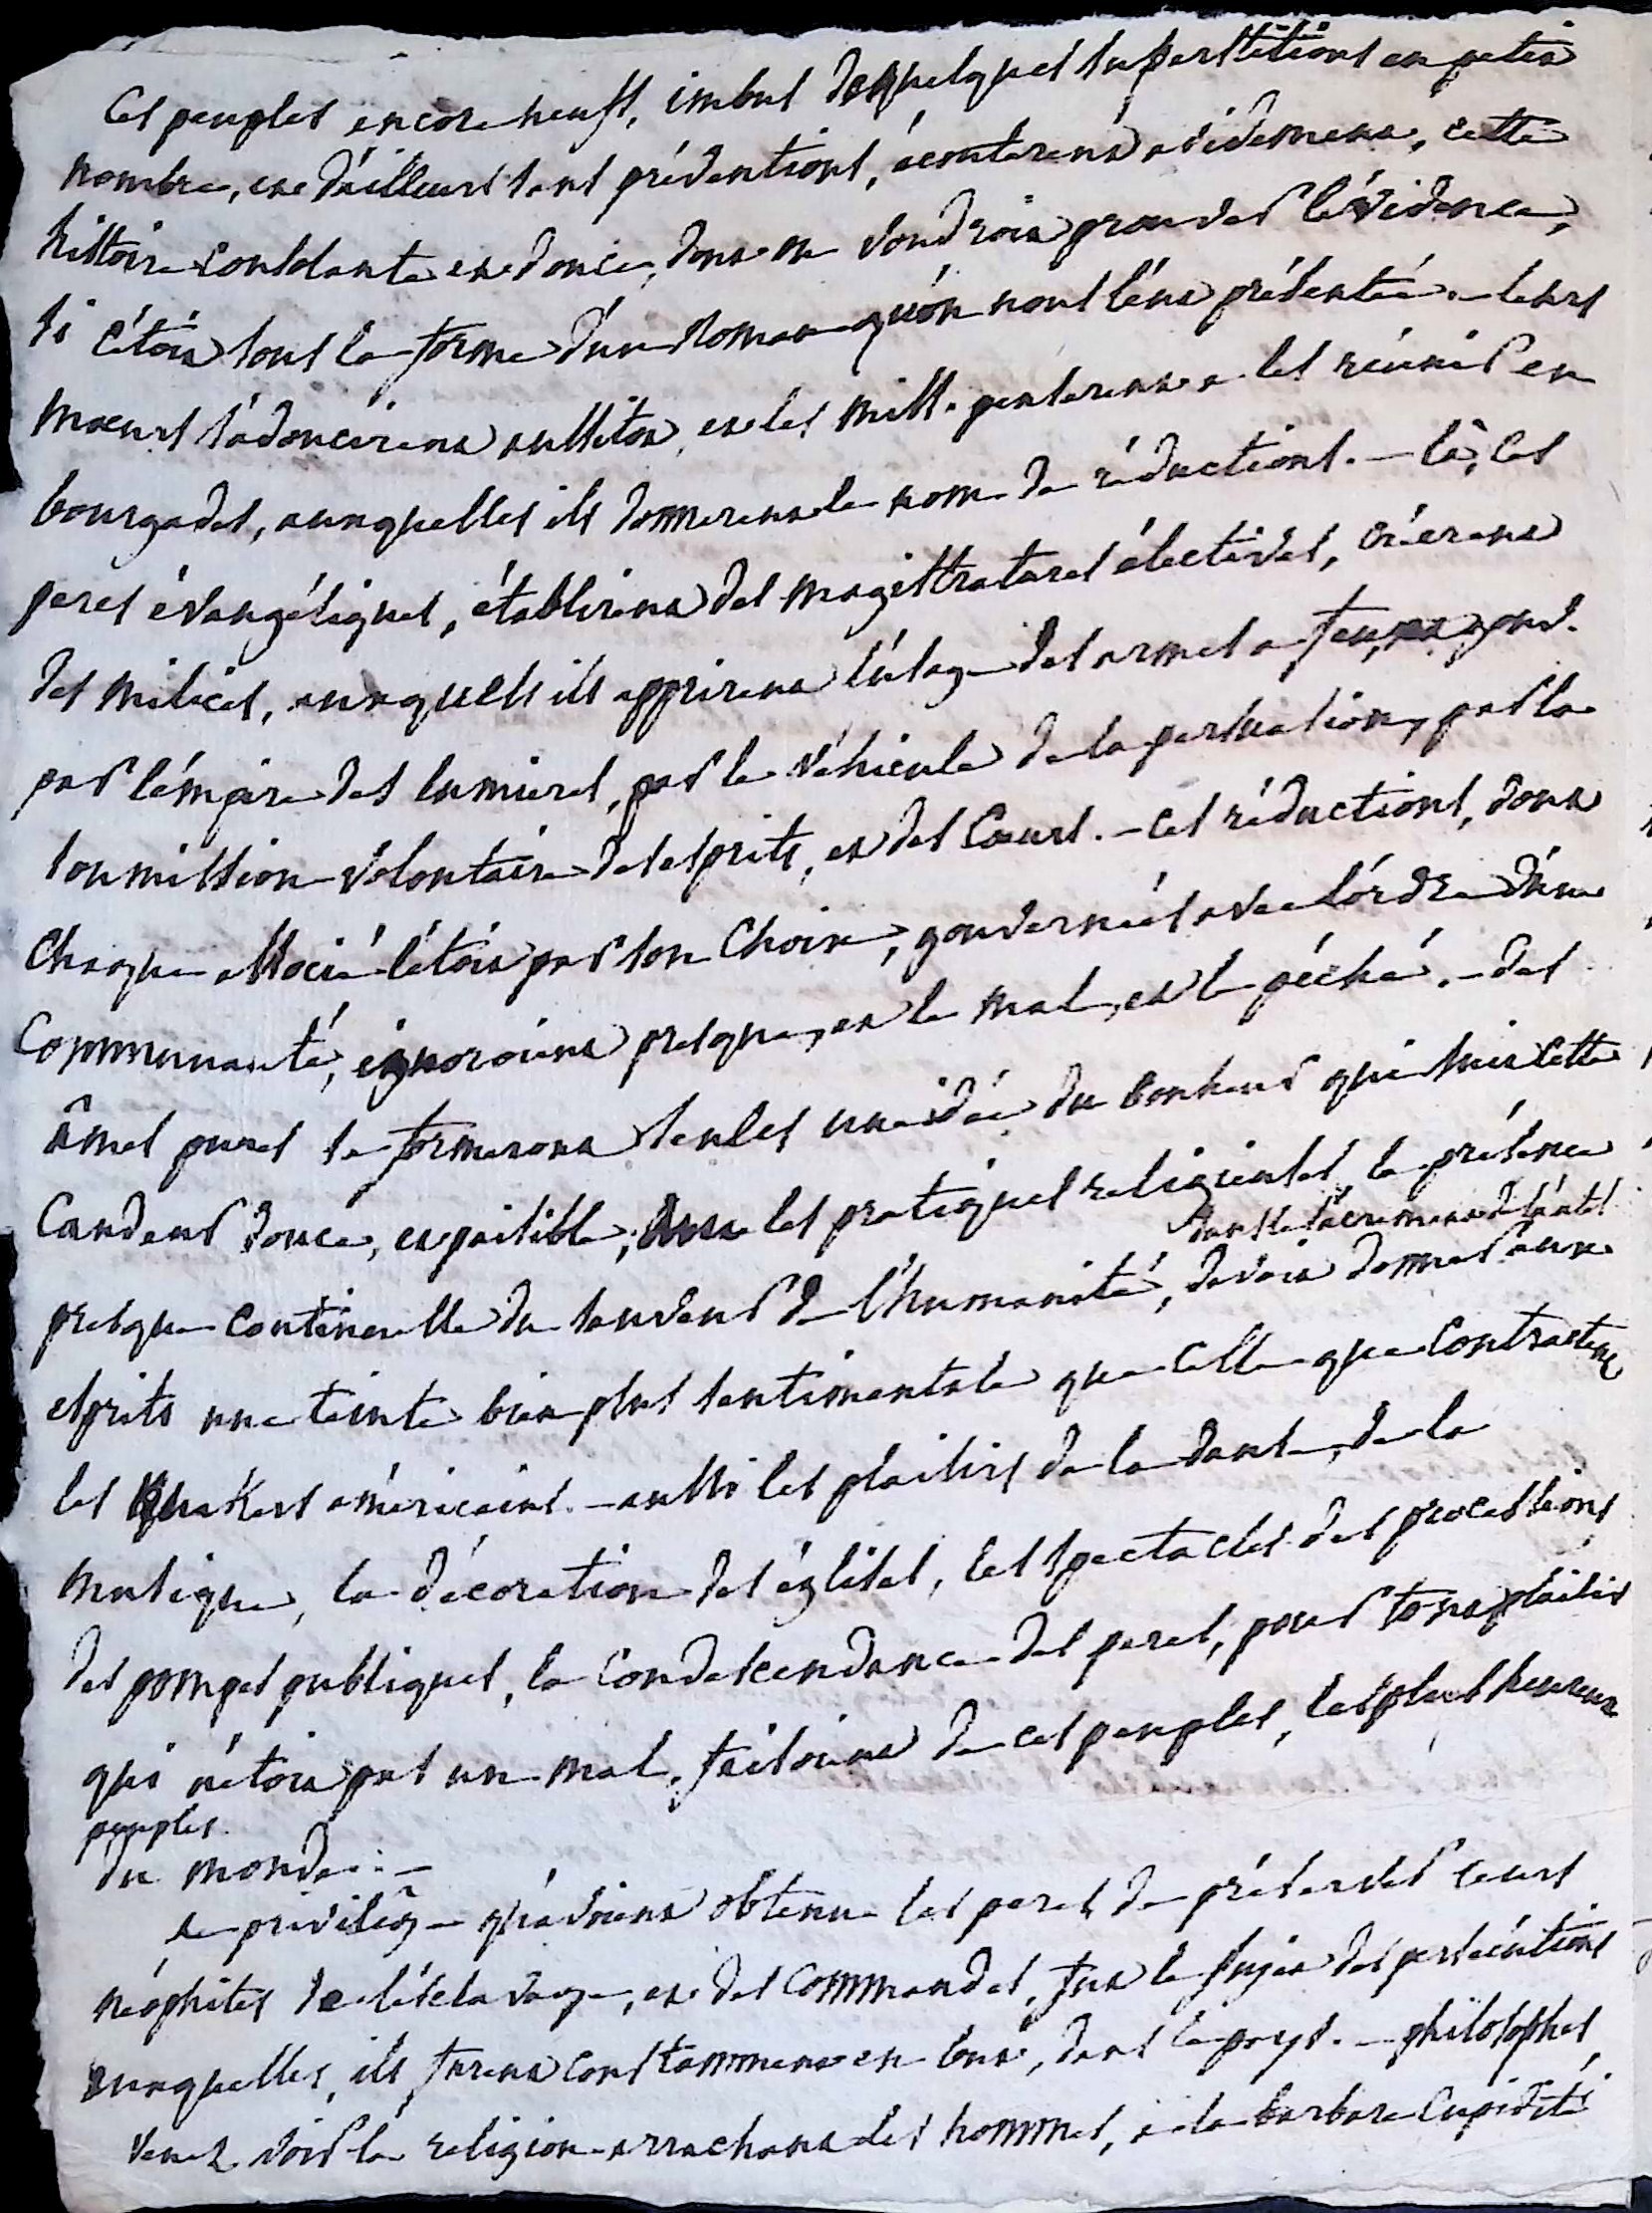 Ces peuples encore neufs, imbus de quelques superstitions en petit
nombre, et d'ailleurs sans préventions, écouterent avidement, cette
histoire consolante et douce, dont on voudroit prouver l'évidence,
si c'étoit sous la forme d'un Roman qu'on nous l'eut présentée. – leurs
mœurs s'adoucirent aussitot, et les miss. penserent a les réunir en
bourgades, auxquelles ils donnerent le nom de réductions. – là, ces
peres évangéliques, établirent des magistratures électives, créerent
des milices, auxquels ils apprirent l'usage des armes a feu, gouv.
par l'empire des lumieres, par le véhicule de la persuation, par la
soumission volontaire des esprits, et des Cœurs. – Ces réductions, dont
Chaque associé l'étoit par son Choix, gouvernées avec l'ordre d'une
Communauté, ignoroient presque, et le mal, et le péché. – des
âmes pures se formeront seules une idée du bonheur qui suit cette
Candeur douce, et paisible; les pratiques religieuses, la présence
dans le sacrement d'autel
presque continuelle du sauveur de l'humanité, devoit donner aux
esprits une teinte bien plus sentimentale que celle que Contractent
les Quakers américains. – aussi les plaisirs de la danse, de la
musique, la décoration des églises, les spectacles des processions
des pompes publiques, la Condescendance des peres, pour tout plaisir
qui n'étoit pas un mal, faisoient de ces peuples, les plus heureux
peuples
du monde. –
le privilêge qu'avoient obtenu les peres, de préserver leurs
néophites de l'ésclavage, et des Commandes, fut le sujet des persécutions
auxquelles, ils furent constamment en but, dans le pays. – philosophes,
venez voir la religion arrachant les hommes, a la barbare Cupidité